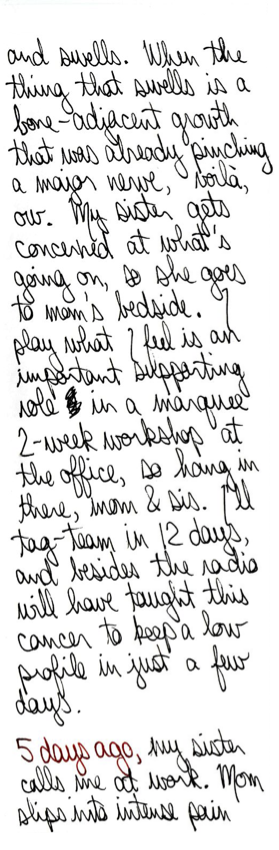 and swells. When the
thing that swells is a
bone-adjacent growth
that was already pinching
a major nerve, voilà,
ow. My sister gets
concerned at what's
going on, so she goes
to mom's bedside. I
play what I feel is an
important supporting
role in a marquee
2-week workshop at
the office, so hang in
there, mom & sis. I'll
tag-team in 12 days,
and besides the radia
will have taught this
cancer to keep a low
profile in just a few
days.
5 days ago, my sister
calls me at work. Mom
slips into intense pain